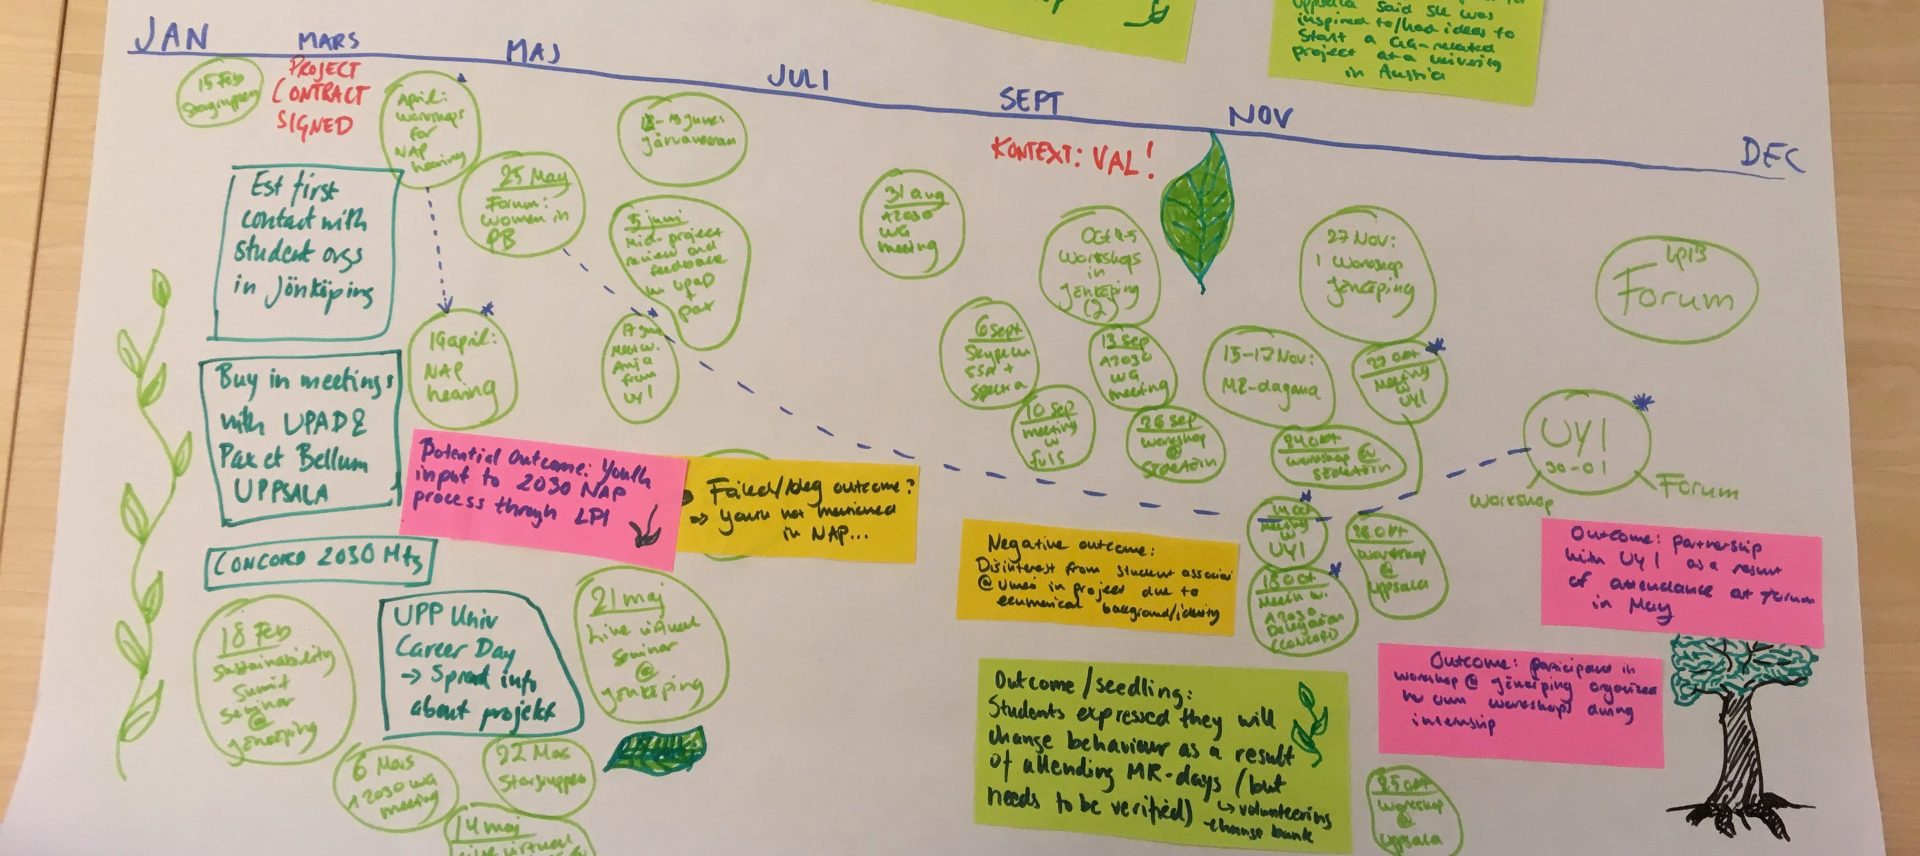 Uppsala said she was
inspired to/had ideas to
start a
project at a
in Austria
JAN
MARS
MAJ
JULI
SEPT
NOV
DEC
PROJECT
CONTRACT
SIGNED
KONTEXT: VAL!
15 Feb
April:
workshops
for
NAP
hearing
25 May
Forum:
women in
PB
5 juni
Mid-project
review and
feedback
w. UPAD
+
pax
31 aug
A2030
WG
meeting
Oct 4-5
workshops
in
Jönköping
(2)
27 Nov:
1 workshop
Jönköping
LPI's
Forum
Est first
contact with
student orgs
in Jönköping
19 april:
NAP
hearing
Meet w.
Anja
from
UYI
6 sept
Skype w
+
13 sep
A2030
WG
meeting
15-17 Nov:
MR-dagarna
Meeting
w
UYI
10 sep
meeting
w
fuf's
26 sep
workshop
@
Södertörn
24 okt
workshop @
Södertörn
UYI
30-01
workshop
Forum
Buy in meetings
with UPAD &
Pax et Bellum
UPPSALA
Potential outcome: Youth
input to 2030 NAP
process through LPI
Failed/neg outcome?
→ youth not mentioned
in NAP...
Negative outcome:
Disinterest from student
@ Umeå in project due to
ecumenical background/identity
meeting
w
UYI
workshop
@
Uppsala
Meet w.
A2030
Delegation
(Concord)
Outcome: partnership
with UYI as a result
of attendance at forum
in May
CONCORD 2030 Mtg
18 Feb
Sustainability
Sumit
Seminar
@
Jönköping
UPP Univ
Career Day
→ Spread info
about projekt
21 maj
Live virtual
seminar
@
Jönköping
Outcome: participant in
workshop @ Jönköping organized
own workshops during
internship
Outcome/seedling:
Students expressed they will
change behaviour as a result
of attending MR-days (but
needs to be verified) ↳ volunteering
- change bank
6 Mars
A2030 WG
meeting
22 Mars
Styrgruppen
14 maj
Live virtual
25 okt
workshop
@
Uppsala